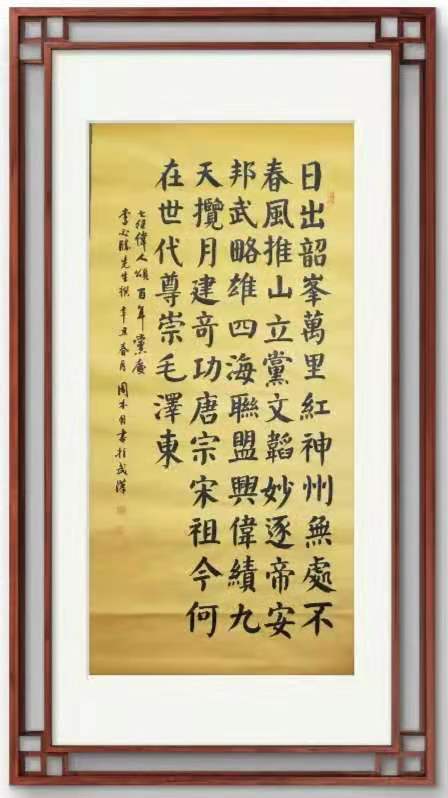 日出韶峯萬里紅神州無處不
春風推山立黨文韜妙逐帝安
邦武略雄四海聯盟興偉績九
天攬月建竒功唐宗宋祖今何
在世代尊崇毛澤東
七律偉人頌百年黨慶
李必勝先生撰辛丑春月周本月書於武漢